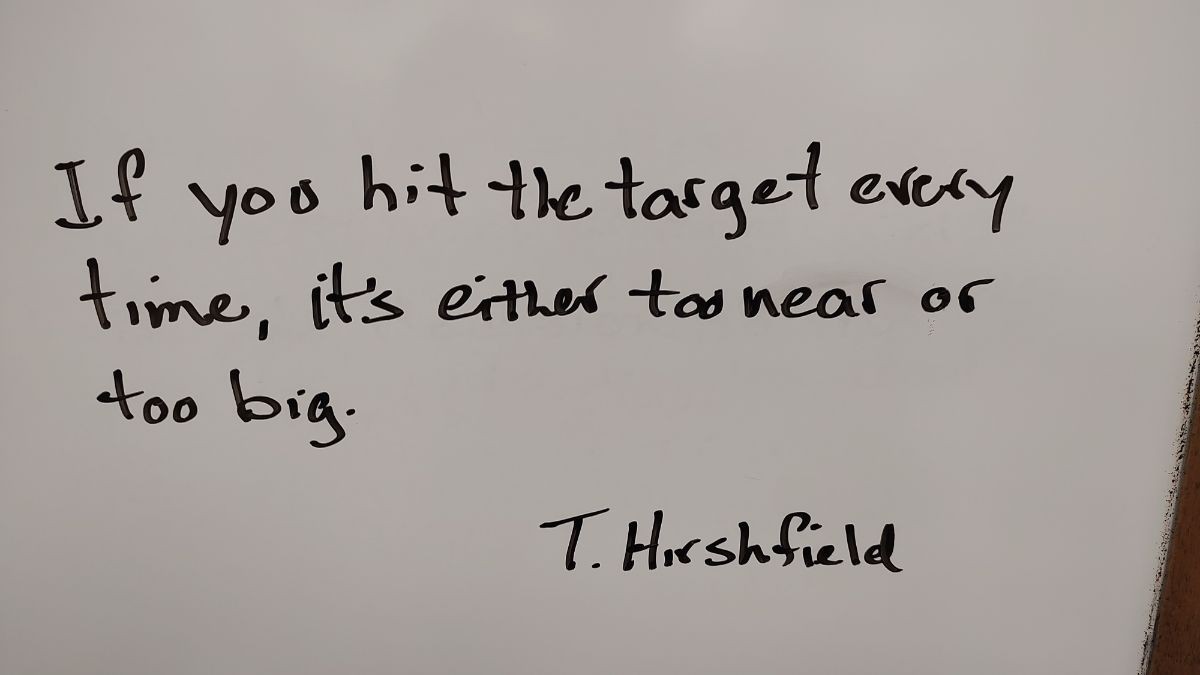 If you hit the target every
time, it's either too near or
too big.
T. Hirshfield